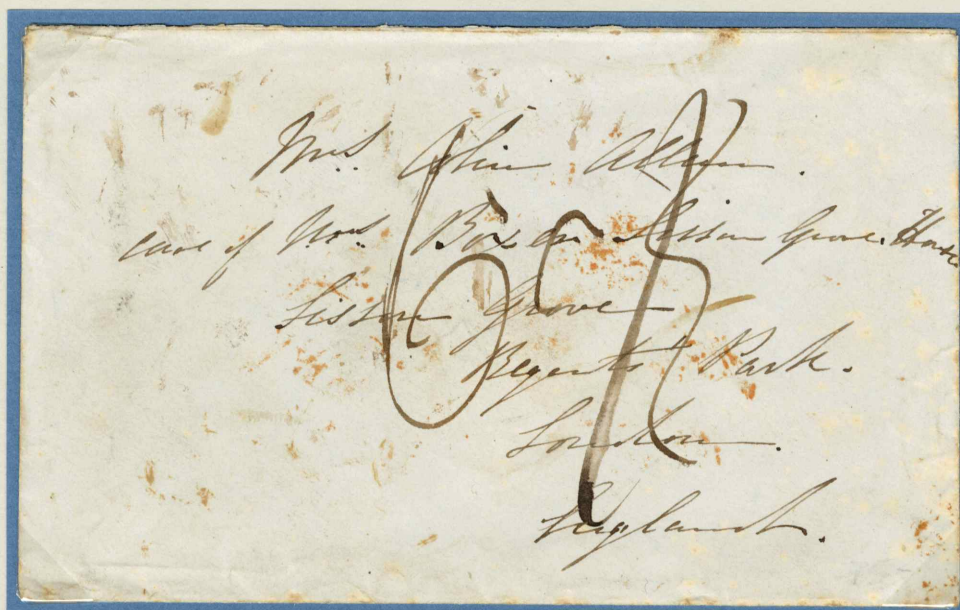 Mrs. Colin Allan.
care of Mrs. Boxer Lisson Grove House
Lisson Grove
Regents Park.
London.
England.